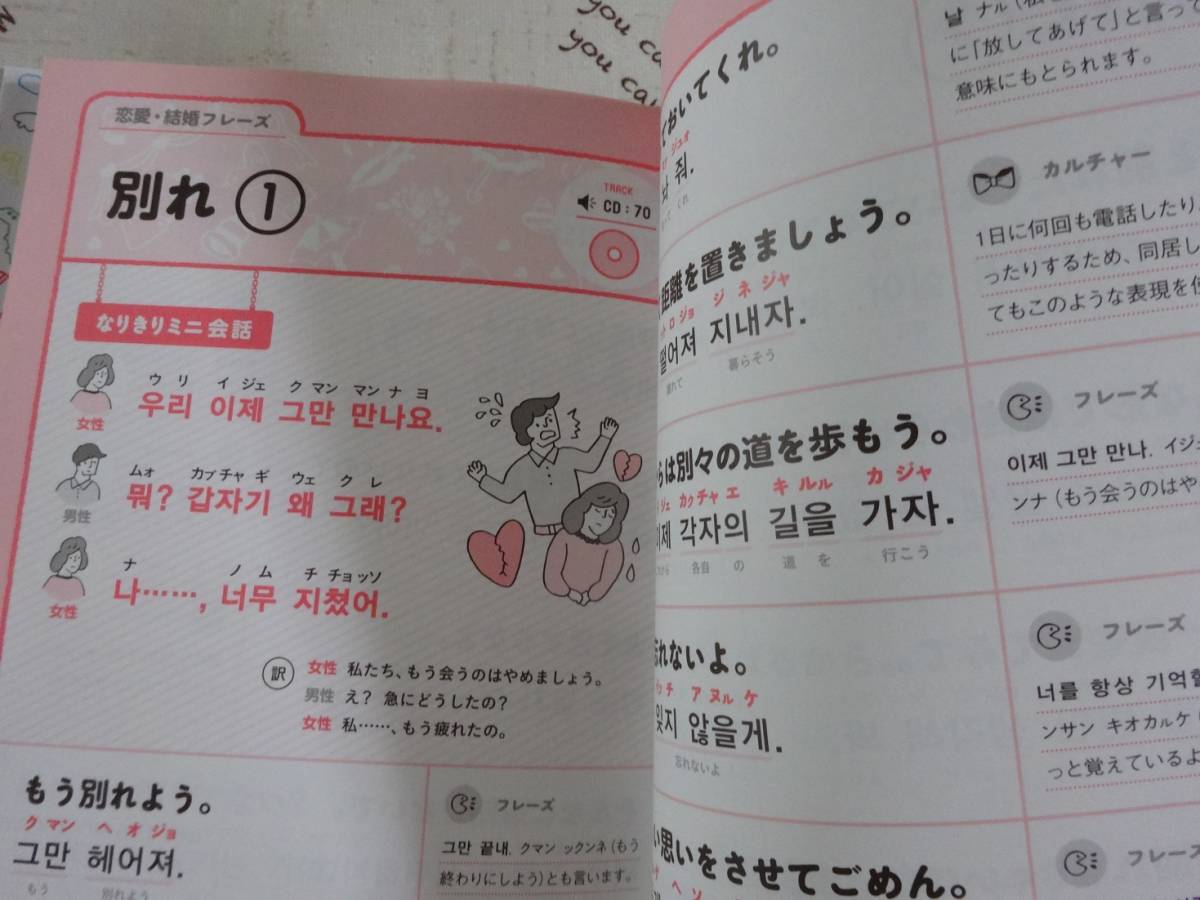 you ca
you can
恋愛・結婚フレーズ
別れ ①
TRACK
CD:70
なりきりミニ会話
ウ リ イ ジェ ク マン マン ナ ヨ
우리 이제 그만 만나요.
女性
ムォ カプチャ ギ ウェ ク レ
뭐? 갑자기 왜 그래?
男性
ナ ノ ム チ チョッソ
나……, 너무 지쳤어.
女性
訳 女性 私たち、もう会うのはやめましょう。
男性 え? 急にどうしたの?
女性 私……、もう疲れたの。
もう別れよう。
ク マン ヘ オ ジョ
그만 헤어져.
もう 別れよう
フレーズ
그만 끝내. クマン ックンネ(もう
終わりにしよう)とも言います。
ておいてくれ。
ジュオ
줘.
くれ
距離を置きましょう。
ト ロ ジョ ジ ネ ジャ
떨어져 지내자.
離れて 暮らそう
らは別々の道を歩もう。
ジェ カクチャ エ キ ルル カ ジャ
이제 각자의 길을 가자.
から 各自 の 道 を 行こう
忘れないよ。
ッチ ア ヌル ケ
잊지 않을게.
忘れないよ
い思いをさせてごめん。
ナ ヘ ソ
날 ナル(私
に「放してあげて」と言って
意味にもとられます。
カルチャー
1日に何回も電話したり
ったりするため、同居し
てもこのような表現を使
フレーズ
이제 그만 만나. イジェ
ンナ(もう会うのはや
フレーズ
너를 항상 기억할
ンサン キオカルケ
っと覚えているよ
フレーズ